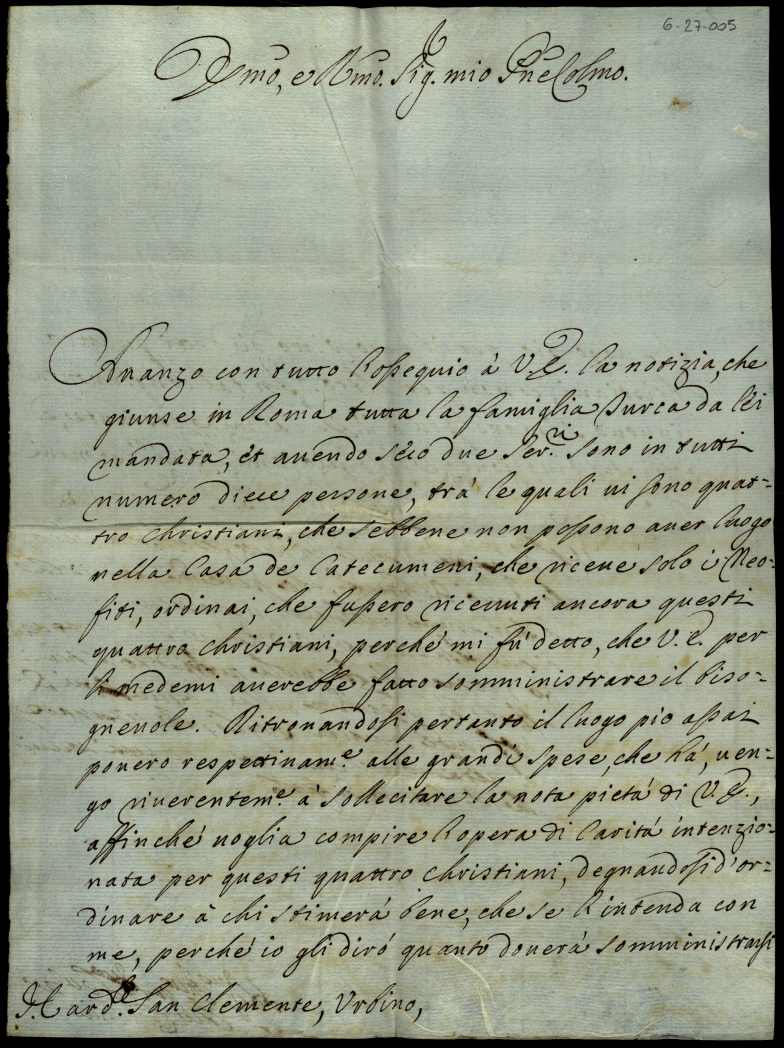 6-27-005
Emo, e Rmo. Sig. mio Pne Colmo.
Auanzo con tutto l'ossequio à V.E. la notizia, che
giunse in Roma tutta la famiglia Turca da lei
mandata, et auendo seco due Ser.ri sono in tutti
numero diece persone, trà le quali ui sono quat=
tro Christiani, che sebbene non possono auer luogo
nella Casa de Catecumeni, che riceue solo i Neo=
fiti, ordinai, che fussero riceuuti ancora questi
quattro Christiani, perché mi fù detto, che V.E. per
li medemi auerebbe fatto somministrare il biso=
gneuole. Ritrouandosi pertanto il luogo pio assai
pouero respettiuam.e alle grandi spese, che hà, uen=
go riuerentem.e à sollecitare la nota pietà di V.E.,
affinché uoglia compire l'opera di Carità intenzio=
nata per questi quattro Christiani, degnandosi d'or=
dinare à chi stimerà bene, che se l'intenda con
me, perché io gli dirò quanto douerà somministrarsi
S. Card.le San Clemente, Urbino,